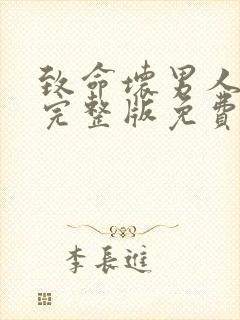 致命壞男人
完整版免費
李長進